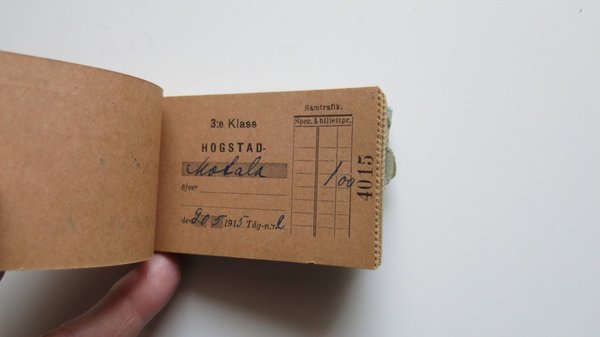 3:e Klass
HOGSTAD-
Motala
öfver
den 20 5 1915 Tåg-n:r 2
Samtrafik.
Spec. å biljettpr.
1 00
4015